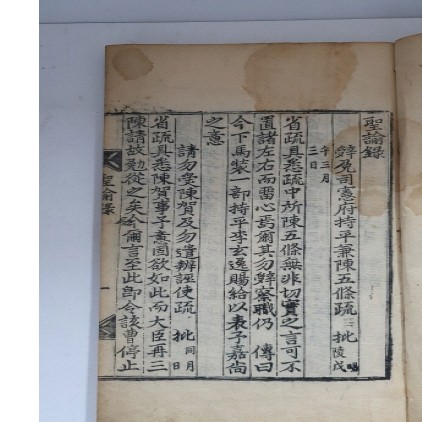 聖諭錄
辭尻司憲府持平兼陳五條疏 批
午三月
三日
省疏具悉疏中所陳五條無非切實之言可不
置諸左右而留心焉爾其勿辭察職仍 傳曰
今下馬裝一部持平李玄逸賜給以表予嘉尙
之意
請勿受陳賀及勿遣辨誣使疏 批 同月
日
省疏具悉陳賀事予意固欲如此而大臣再三
陳請故勉從之矣今爾言至此卽令該曹停止
聖諭錄